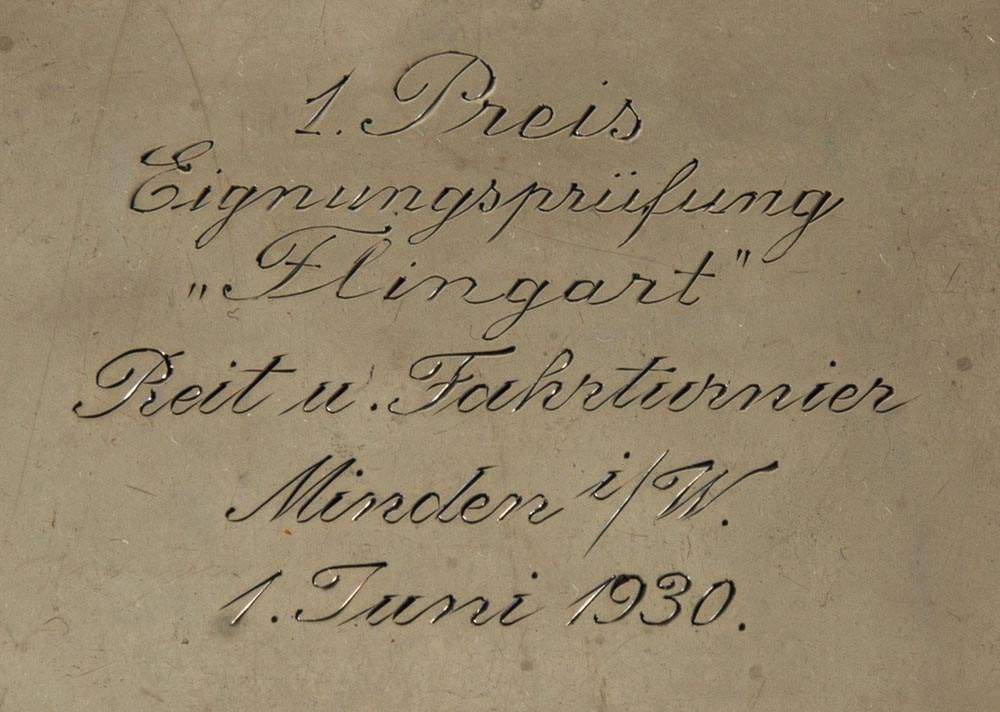 1. Preis
Eignungsprüfung
„Flingart"
Reit u. Fahrturnier
Minden i/W.
1. Juni 1930.